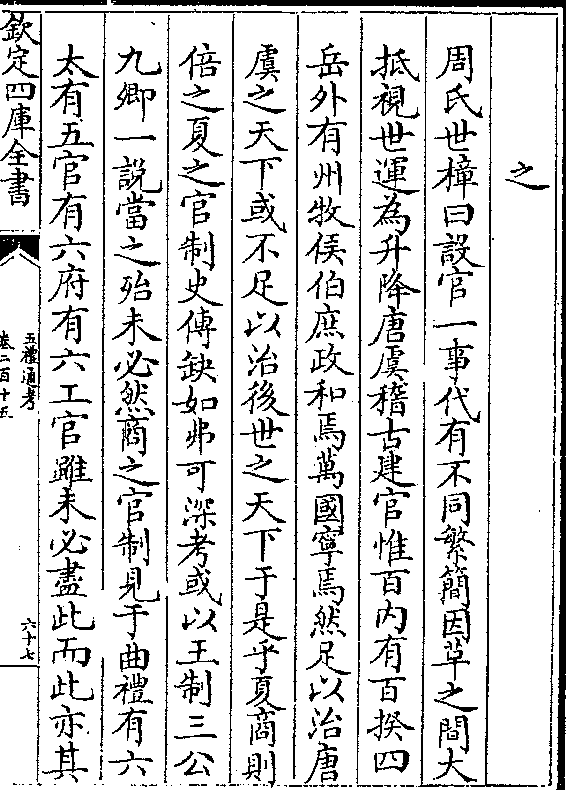 之
周氏世樟曰設官一事代有不同繁簡因革之間大
抵視世運為升降唐虞稽古建官惟百内有百揆四
岳外有州牧侯伯庶政和焉萬國寧焉然足以治唐
虞之天下或不足以治後世之天下于是乎夏商則
倍之夏之官制史傳缺如弗可深考或以王制三公
九卿一説當之殆未必然商之官制見于曲禮有六
太有五官有六府有六工官雖未必盡此而此亦其
欽定四庫全書
五禮通考
卷二百十五
六十七